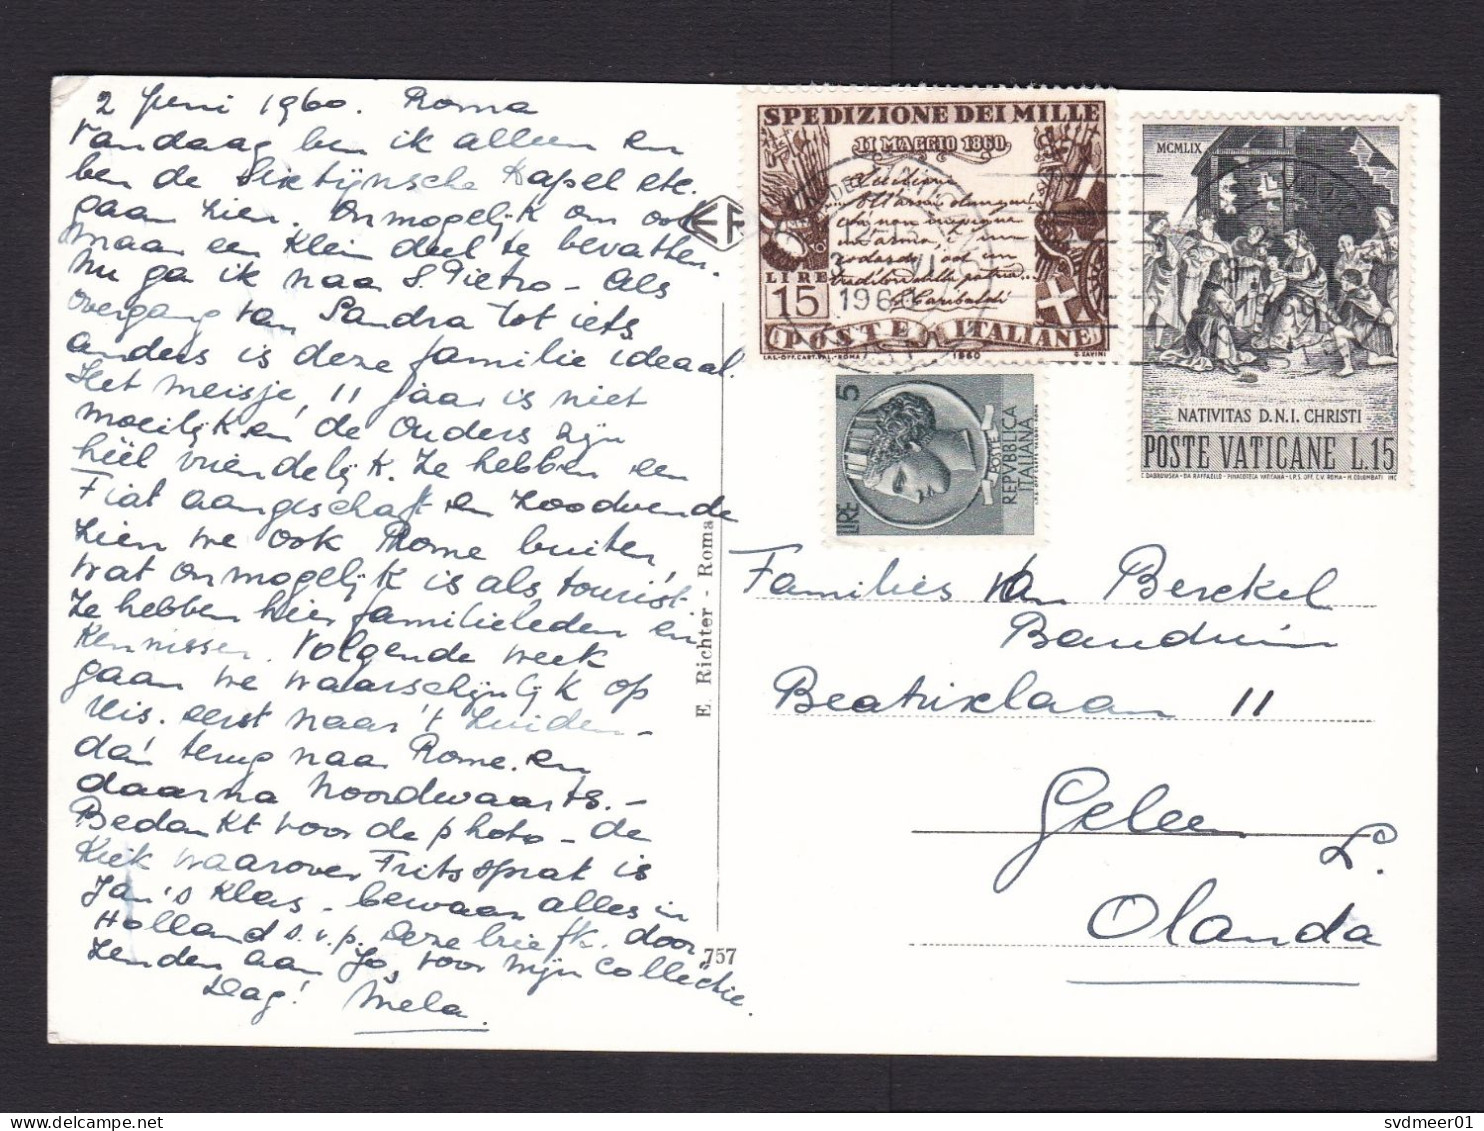 2 Juni 1960. Roma
Vandaag ben ik alleen en
ben de Sixtijnsche Kapel etc.
gaan zien. Onmogelijk om ook
maar een klein deel te bevatten.
Nu ga ik naar S. Pietro - Als
overgang van Sandra tot iets
anders is deze familie ideaal.
Het meisje, 11 jaar is niet
moeilijk en de ouders zijn
héél vriendelijk. Ze hebben een
Fiat aangeschaft en zoodoende
zien we ook Rome buiten,
wat onmogelijk is als tourist.
Ze hebben hier familieleden en
kennissen. Volgende week
gaan we waarschijnlijk op
reis. eerst naar 't Zuiden -
dan terug naar Rome. en
daarna Noordwaarts. -
Bedankt voor de photo - de
kiek waarover Frits sprat is
Jan's klas - bewaar alles in
Holland s.v.p. Deze briefk. door
zenden aan Jo, voor mijn collectie.
Dag! Mela.
E. Richter - Roma
757
SPEDIZIONE DEI MILLE
11 MAGGIO 1860
LIRE
15
G Garibaldi
POSTE ITALIANE
I.P.S.-OFF. CART. VAL.-ROMA 1960 G. SAVINI
1960
MCMLIX
NATIVITAS D.N.I. CHRISTI
POSTE VATICANE L.15
LIRE 5
POSTE
REPVBBLICA
ITALIANA
Families van Berckel
Bauduin
Beatrixlaan 11
Geleen
L.
Olanda
svdmeer01